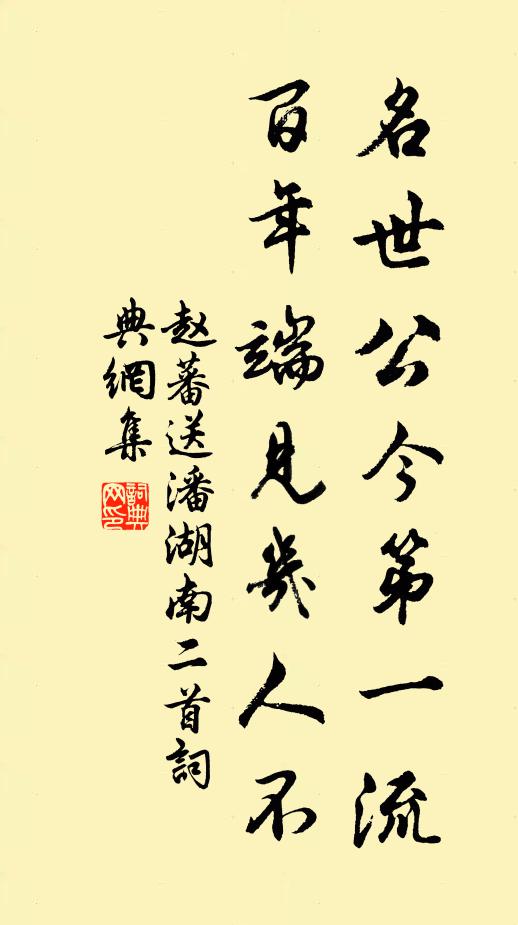 名世公今第一流
百年端見幾人不
赵蕃送潘湖南二首詞
典網集
詞典
网印